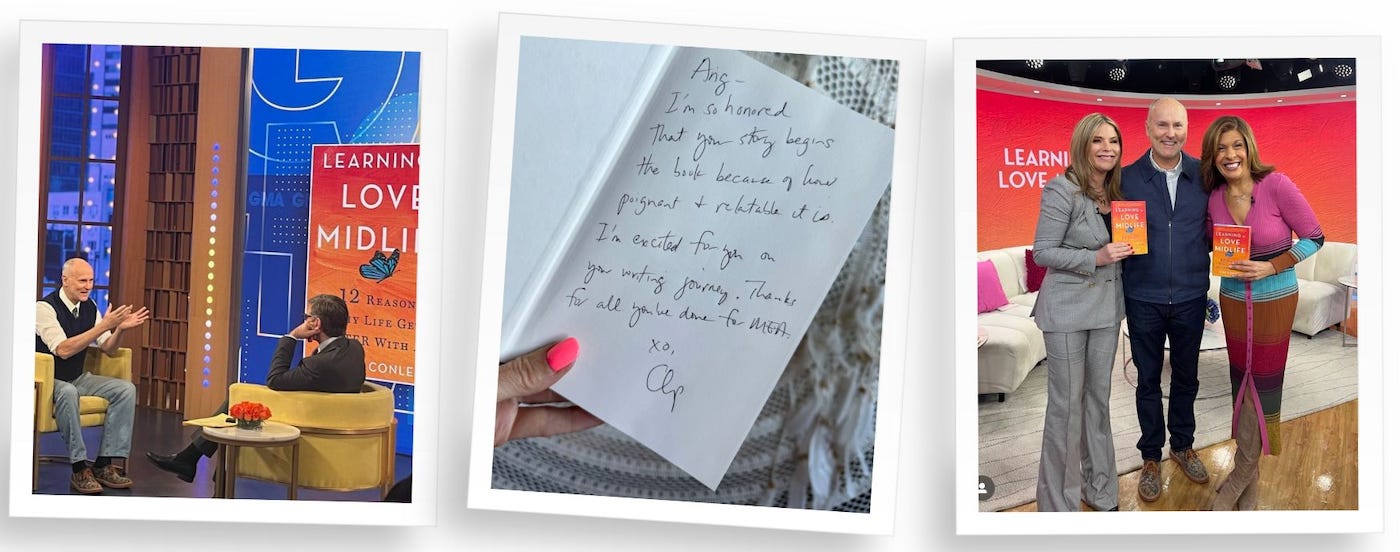 LEARNING
LOVE
MIDLIF
12 REASON
Y LIFE GE
ER WITH
CONLE
GMA
Ang-
I'm so honored
that your story begins
the book because of how
poignant + relatable it is.
I'm excited for you on
your writing journey. Thanks
for all you've done for MEA.
xo,
Chip
LEARNI
LOVE
LEARNING to
LOVE
MIDLIFE
LEARNING to
LOVE
MIDLIFE